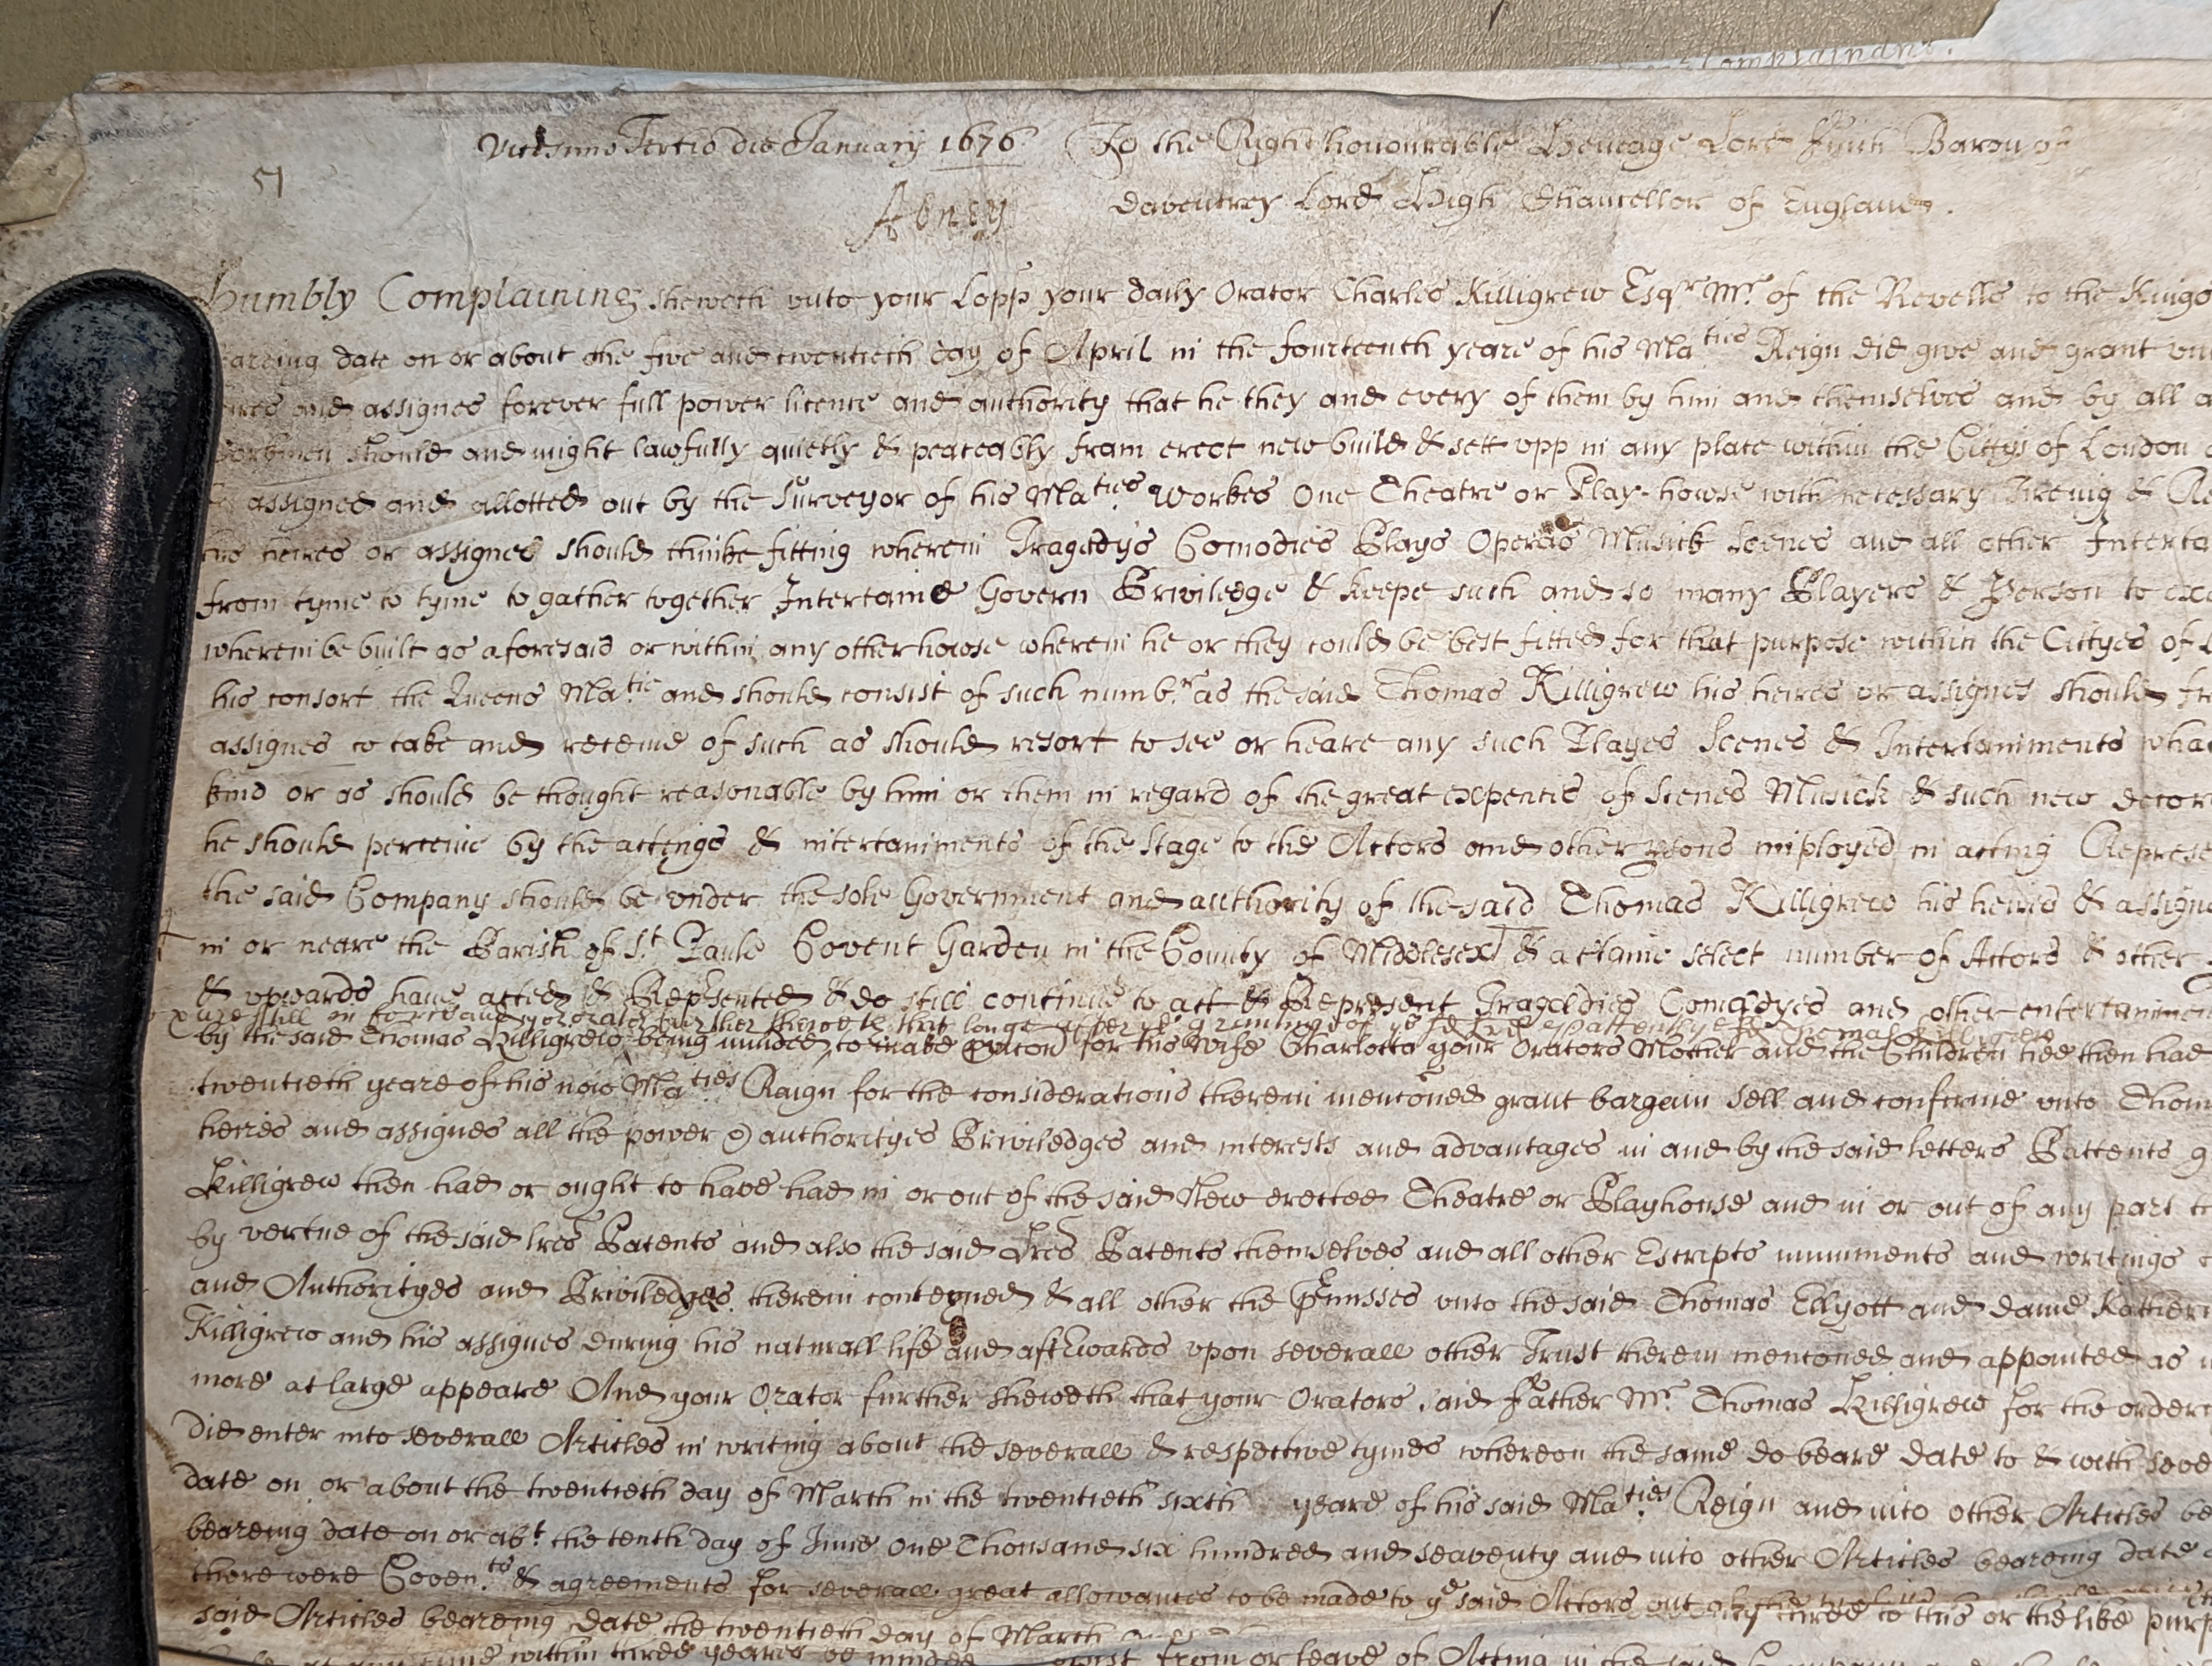 Complainant.
Vicesimo Tertio die January 1676 To the Right honourable Heneage Lord Finch Baron of
51
Abney Daventrey Lord High Chancellor of England.
Humbly Complaining Sheweth unto your Lopp your daily Orator Charles Killigrew Esqr Mr. of the Revells to the Kings
beareing date on or about the five and twentieth day of April in the fourteenth yeare of his Ma.ties Reign did give and grant un
heires and assignes forever full power licence and authority that he they and every of them by him and themselves and by all
workmen should and might lawfully quietly & peaceably fram erect new build & sett upp in any place within the Cittys of London
assigned and allotted out by the Surveyor of his Ma.ties Workes One Theatre or Play-howse with necessary Tireing &
his heires or assignes should thinke fitting wherein Tragedys Comodies Plays Operas Musick Scenes and all other Interta
from tyme to tyme to gather together Intertaine Govern Priviledge & keepe such and so many Players & Person to
wherein be built as aforesaid or within any other howse wherein he or they could be best fitted for that purpose within the Cittyes of
his consort the Queens Ma.tie and should consist of such numb.r as the said Thomas Killigrew his heires or assignes should
assignes to take and receive of such as should resort to see or heare any such Playes Scenes & Intertainments
kind or as should be thought reasonable by him or them in regard of the great expences of Scenes Musick & such new decor
he should perceive by the actings & intertainments of the Stage to the Actors and other psons imployed in acting Represe
the said Company should be under the sole Government and authority of the said Thomas Killigrew his heires & assigne
in or neare the Parish of S.t Paule Covent Garden in the County of Middlesex & a chaine select number of Actors & other
& upwards have acted & Rep'sented & do still continue to act & Represent Tragedies Comedyes and other entertainmen
are still in force and yor orator further sheweth that longe after ye granting of ye sd tres pattents ye sd Thomas Killigrew
by the said Thomas Killigrew being minded to make pvicon for his Wife Charlotte your Orators Mother and the Children hee then had
twentieth yeare of his now Ma.ties Raign for the considerations therein mencioned grant bargain sell and confirme unto Thom
heires and assignes all the power authorityes Priviledges and interests and advantages in and by the said letters Pattents
Killigrew then had or ought to have had in or out of the said New erected Theatre or Playhouse and in or out of any part
by vertue of the said lres Patents and also the said Lres Patents themselves and all other Escripts muniments and writings
and Authorityes and Priviledges therein conteyned & all other the Pmisses unto the said Thomas Ellyott and dame Katheri
Killigrew and his assignes during his naturall life and aft'wards upon severall other Trust therein mencioned and appointed as
more at large appeare And your Orator further sheweth that your Orators said Father Mr. Thomas Killigrew for the order
did enter into severall Articles in writing about the severall & respective tymes whereon the same do beare date to & with seve
date on or about the twentieth day of March in the twentieth sixth yeare of his said Ma.ties Reign and into other Articles be
beareing date on or abt. the tenth day of June One Thousand six hundred and seaventy and into other Articles beareing date
there were Coven.ts & agreements for severall great allowances to be made to ye said Actors out of
said Articles beareing date the twentieth day of March three to this or the like purp
within three yeares be minded from or leave of Acting in the said